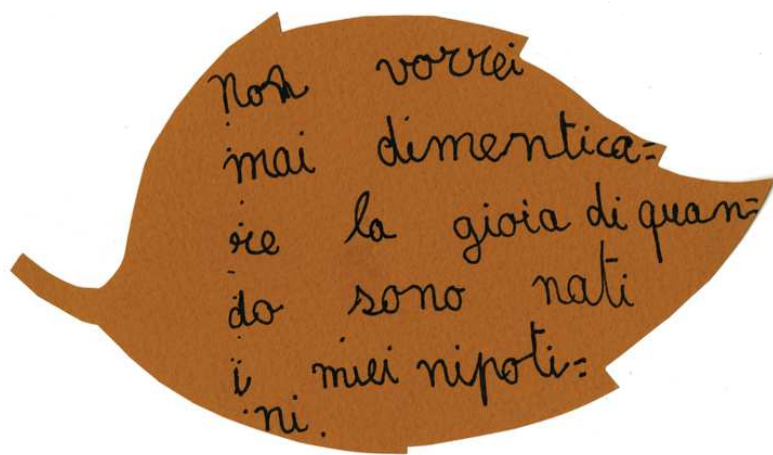 Non vorrei
mai dimentica=
re la gioia di quan=
do sono nati
i miei nipoti=
ni.